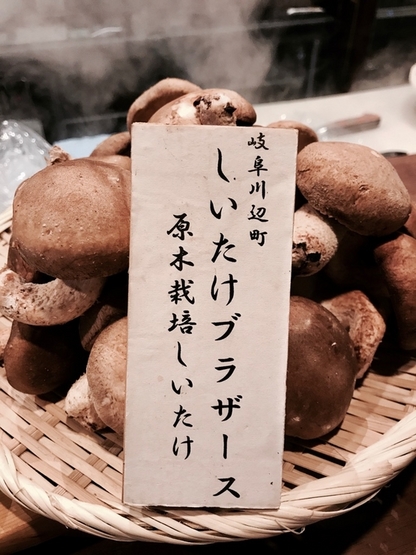 岐阜川辺町
しいたけブラザース
原木栽培しいたけ